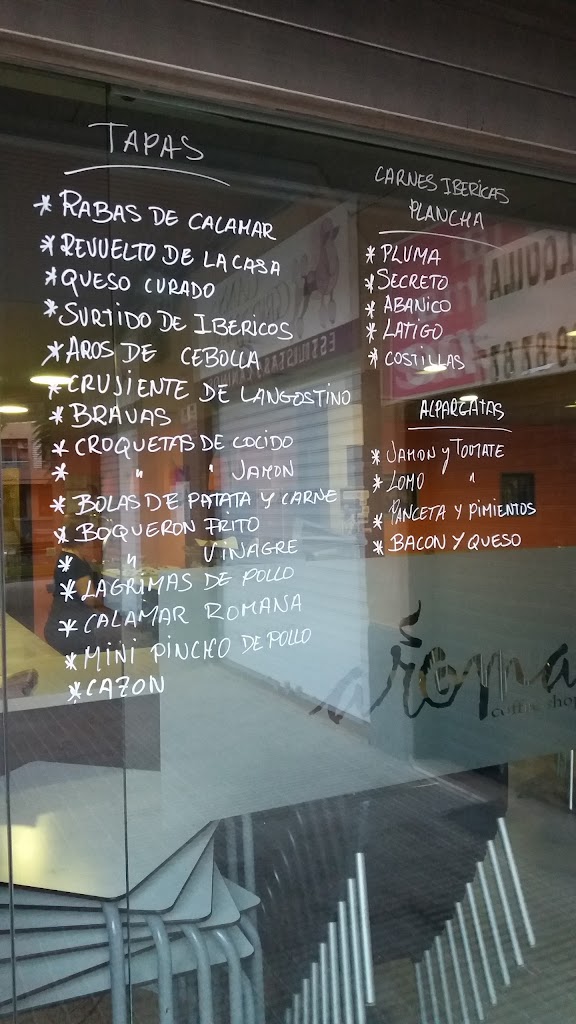 TAPAS
* RABAS DE CALAMAR
* REVUELTO DE LA CASA
* QUESO CURADO
* SURTIDO DE IBERICOS
* AROS DE CEBOLLA
* CRUJIENTE DE LANGOSTINO
* BRAVAS
* CROQUETAS DE COCIDO
* " " JAMON
* BOLAS DE PATATA Y CARNE
* BOQUERON FRITO
* " VINAGRE
* LAGRIMAS DE POLLO
* CALAMAR ROMANA
* MINI PINCHO DE POLLO
* CAZON
CARNES IBERICAS
PLANCHA
* PLUMA
* SECRETO
* ABANICO
* LATIGO
* COSTILLAS
ALPARGATAS
* JAMON y TOMATE
* LOMO "
* PANCETA Y PIMIENTOS
* BACON Y QUESO
aroma
coffee shop